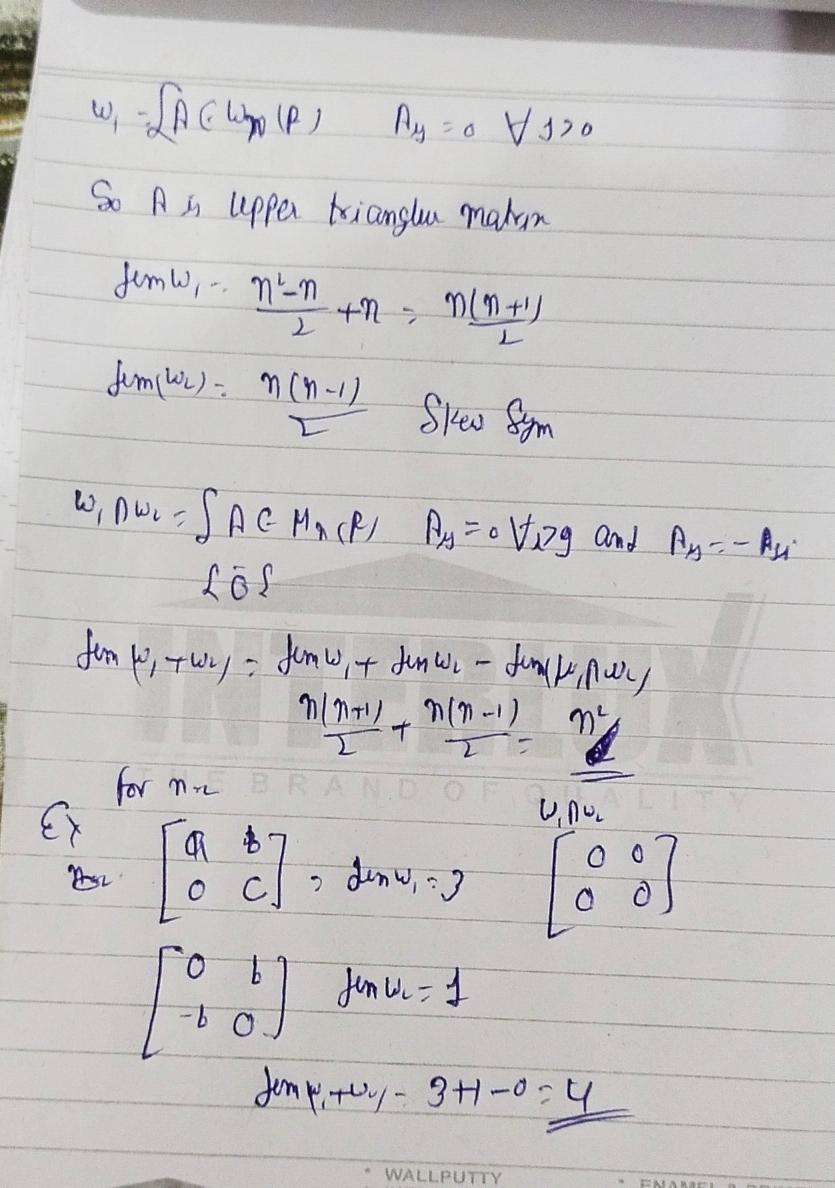 W₁ = {A ∈ Mn(R) Aij = 0 ∀ i>j
So A is upper triangular matrix
dim W₁ = (n²-n)/2 + n = n(n+1)/2
dim(W₂) = n(n-1)/2 Skew Sym
W₁ ∩ W₂ = {A ∈ Mn(R) Aij = 0 ∀ i>j and Aij = -Aji
{0}
dim(W₁+W₂) = dim W₁ + dim W₂ - dim(W₁∩W₂)
n(n+1)/2 + n(n-1)/2 = n²
for n=2
Ex
W₁∩W₂
n=2 [a b; 0 c] , dim W₁ = 3 [0 0; 0 0]
[0 b; -b 0] dim W₂ = 1
dim(W₁+W₂) = 3+1-0 = 4
INTERLUX
THE BRAND OF QUALITY
• WALLPUTTY